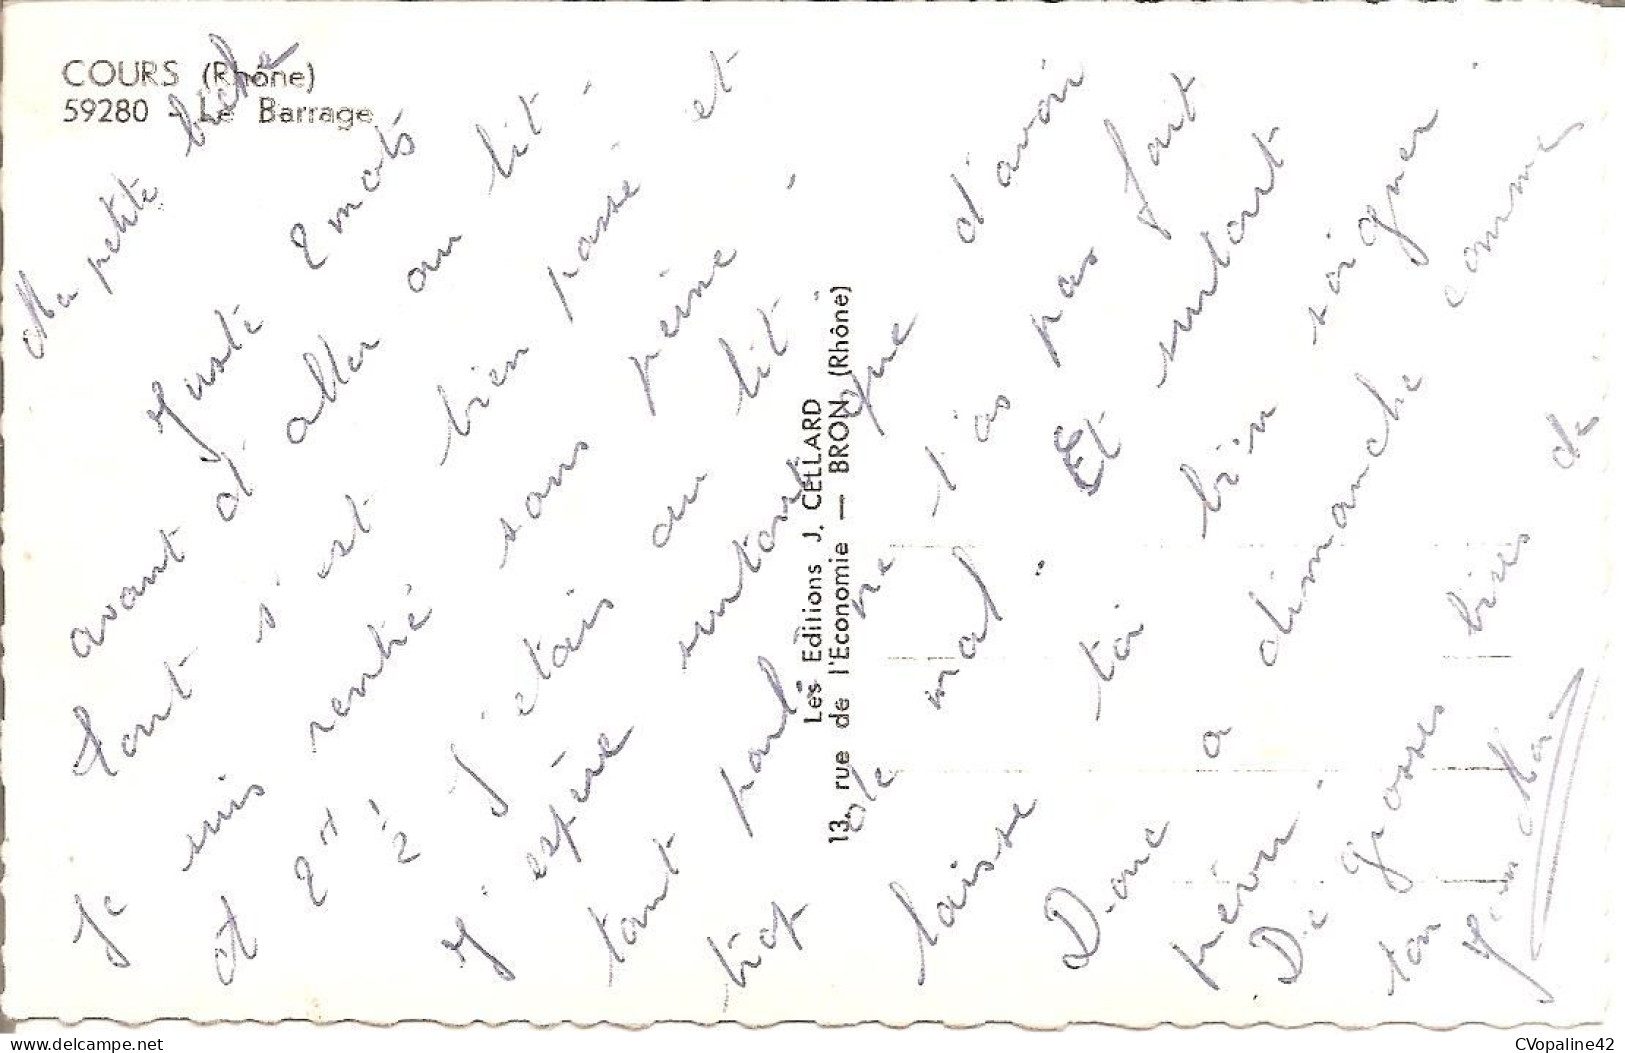 COURS (Rhône)
59280 - Le Barrage
Ma petite biche
Juste 2 mots
avant d'aller au lit -
tout s'est bien passé et
Je suis rentré sans peine -
et 2H 1/2 j'étais au lit.
J'espère surtout que d'avoir
tant parlé ne t'as pas fait
trop de mal. Et surtout
laisse toi bien soigner.
Donc a dimanche comme
prévu.
De grosses bises de
ton
Les Editions J. CELLARD
13, rue de l'Economie — BRON (Rhône)
delcampe.net
CVopaline42